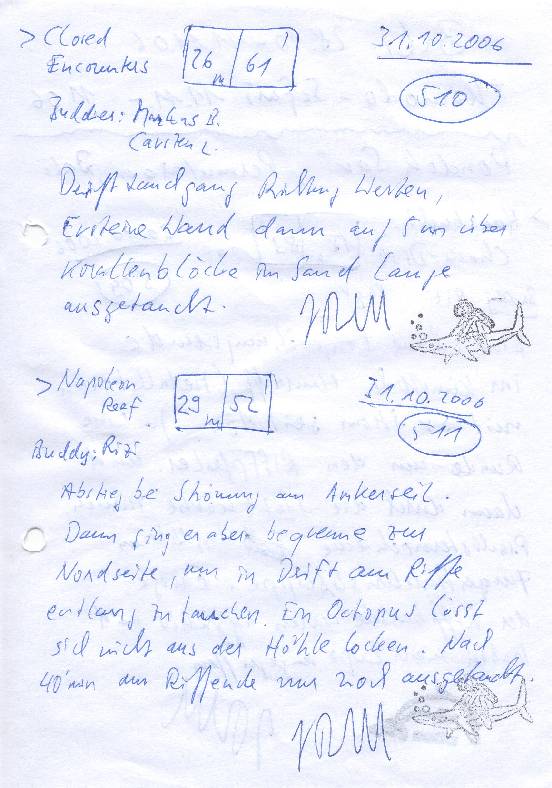 > Closed
Encounters
26 m 61'
31.10.2006
510
Buddies: Markus B.
Carsten L.
Drifttauchgang Richtung Westen,
Erst eine Wand dann auf 5m über
Korallenblöcke im Sand Lange
ausgetaucht.
> Napoleon
Reef.
29 m 52
31.10.2006
511
Buddy: Rizi
Abstieg bei Strömung am Ankerseil.
Dann ging es aber bequeme zur
Nordseite, um in Drift am Riffe
entlang zu tauchen. Ein Octopus lässt
sich nicht aus der Höhle locken. Nach
40 min am Riffende nur noch ausgetaucht.